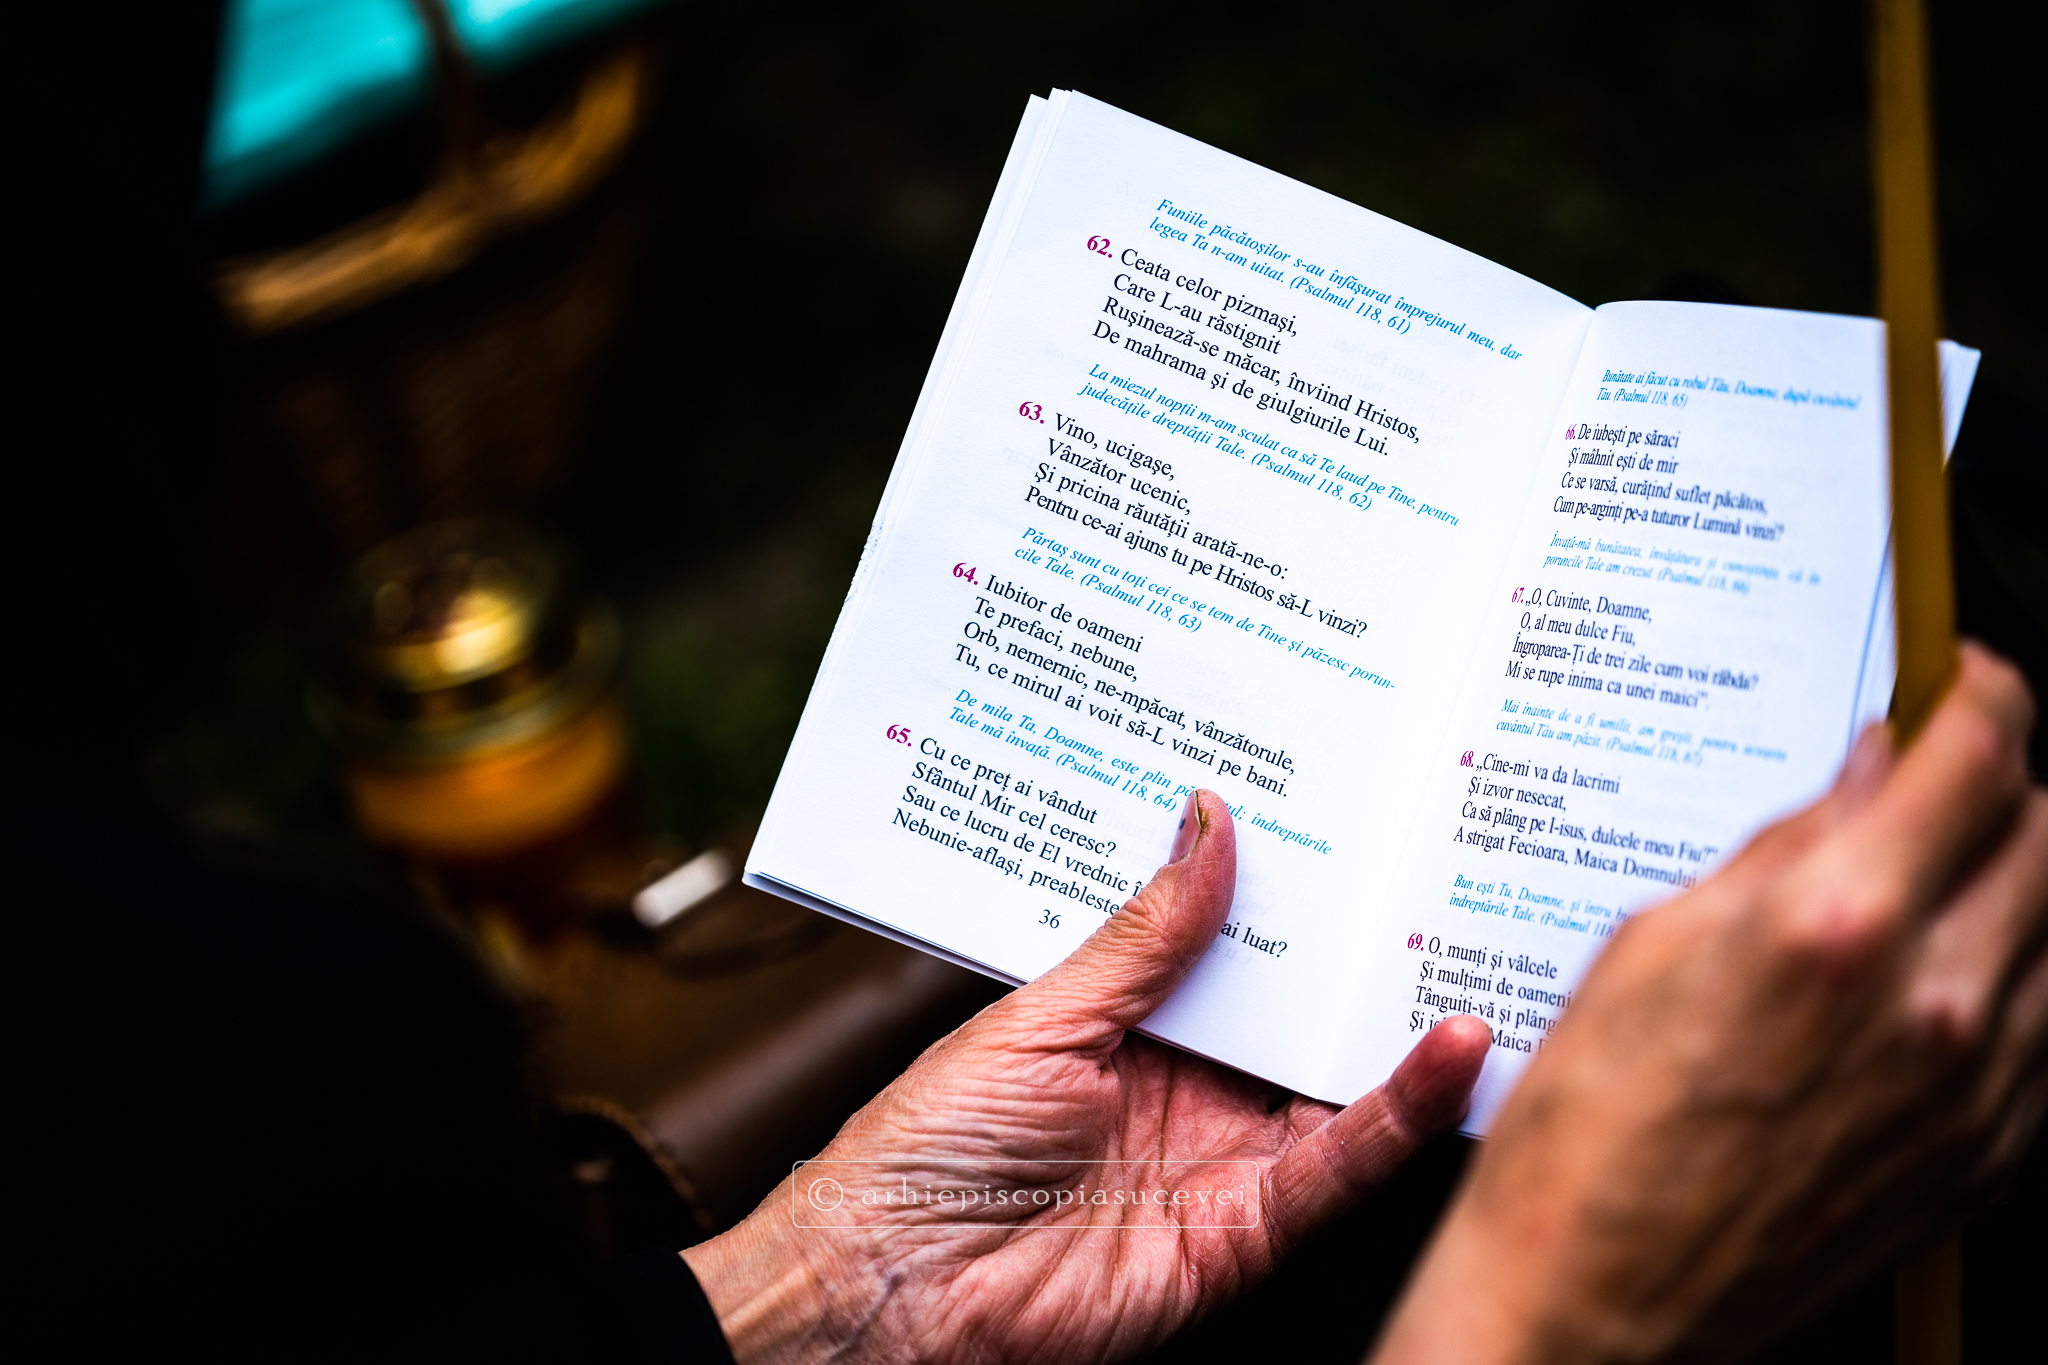 Funiile păcătoşilor s-au înfăşurat împrejurul meu, dar
legea Ta n-am uitat. (Psalmul 118, 61)
62. Ceata celor pizmaşi,
Care L-au răstignit
Ruşinează-se măcar, înviind Hristos,
De mahrama şi de giulgiurile Lui.
La miezul nopţii m-am sculat ca să Te laud pe Tine, pentru
judecăţile dreptăţii Tale. (Psalmul 118, 62)
63. Vino, ucigaşe,
Vânzător ucenic,
Şi pricina răutăţii arată-ne-o:
Pentru ce-ai ajuns tu pe Hristos să-L vinzi?
Părtaş sunt cu toţi cei ce se tem de Tine şi păzesc porun-
cile Tale. (Psalmul 118, 63)
64. Iubitor de oameni
Te prefaci, nebune,
Orb, nemernic, ne-mpăcat, vânzătorule,
Tu, ce mirul ai voit să-L vinzi pe bani.
De mila Ta, Doamne, este plin îndreptările
Tale mă învaţă. (Psalmul 118, 64)
65. Cu ce preţ ai vândut
Sfântul Mir cel ceresc?
Sau ce lucru de El vrednic
Nebunie-aflaşi, ai luat?
36
Bunătate ai făcut cu robul Tău, Doamne, după cuvântul
Tău. (Psalmul 118, 65)
66. De iubeşti pe săraci
Şi mâhnit eşti de mir
Ce se varsă, curăţind suflet păcătos,
Cum pe-arginţi pe-a tuturor Lumină vinzi?
Învaţă-mă bunătatea, învăţătura şi cunoştinţa, că în
poruncile Tale am crezut. (Psalmul 118, 66)
67. „O, Cuvinte, Doamne,
O, al meu dulce Fiu,
Îngroparea-Ţi de trei zile cum voi răbda?
Mi se rupe inima ca unei maici”.
Mai înainte de a fi umilit, am greşit, pentru aceasta
cuvântul Tău am păzit. (Psalmul 118, 67)
68. „Cine-mi va da lacrimi
Şi izvor nesecat,
Ca să plâng pe I-isus, dulcele meu Fiu?”
A strigat Fecioara, Maica Domnului
Bun eşti Tu, Doamne, şi întru
îndreptările Tale. (Psalmul 118
69. O, munţi şi vâlcele
Şi mulţimi de oameni
Tânguiţi-vă şi
Şi Maica
© arhiepiscopiasucevei